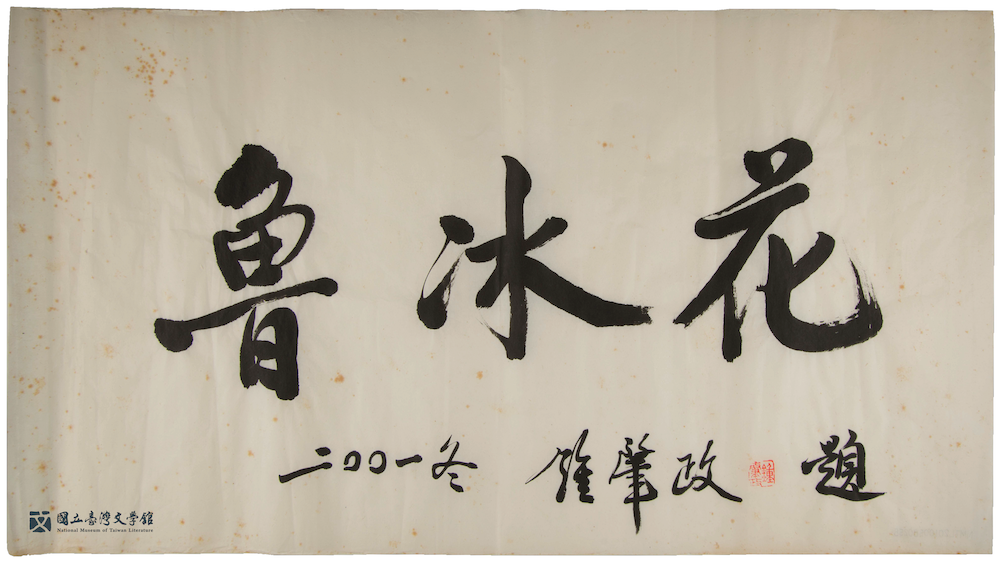 魯冰花
二〇〇一冬 鍾肇政 題
國立臺灣文學館
National Museum of Taiwan Literature